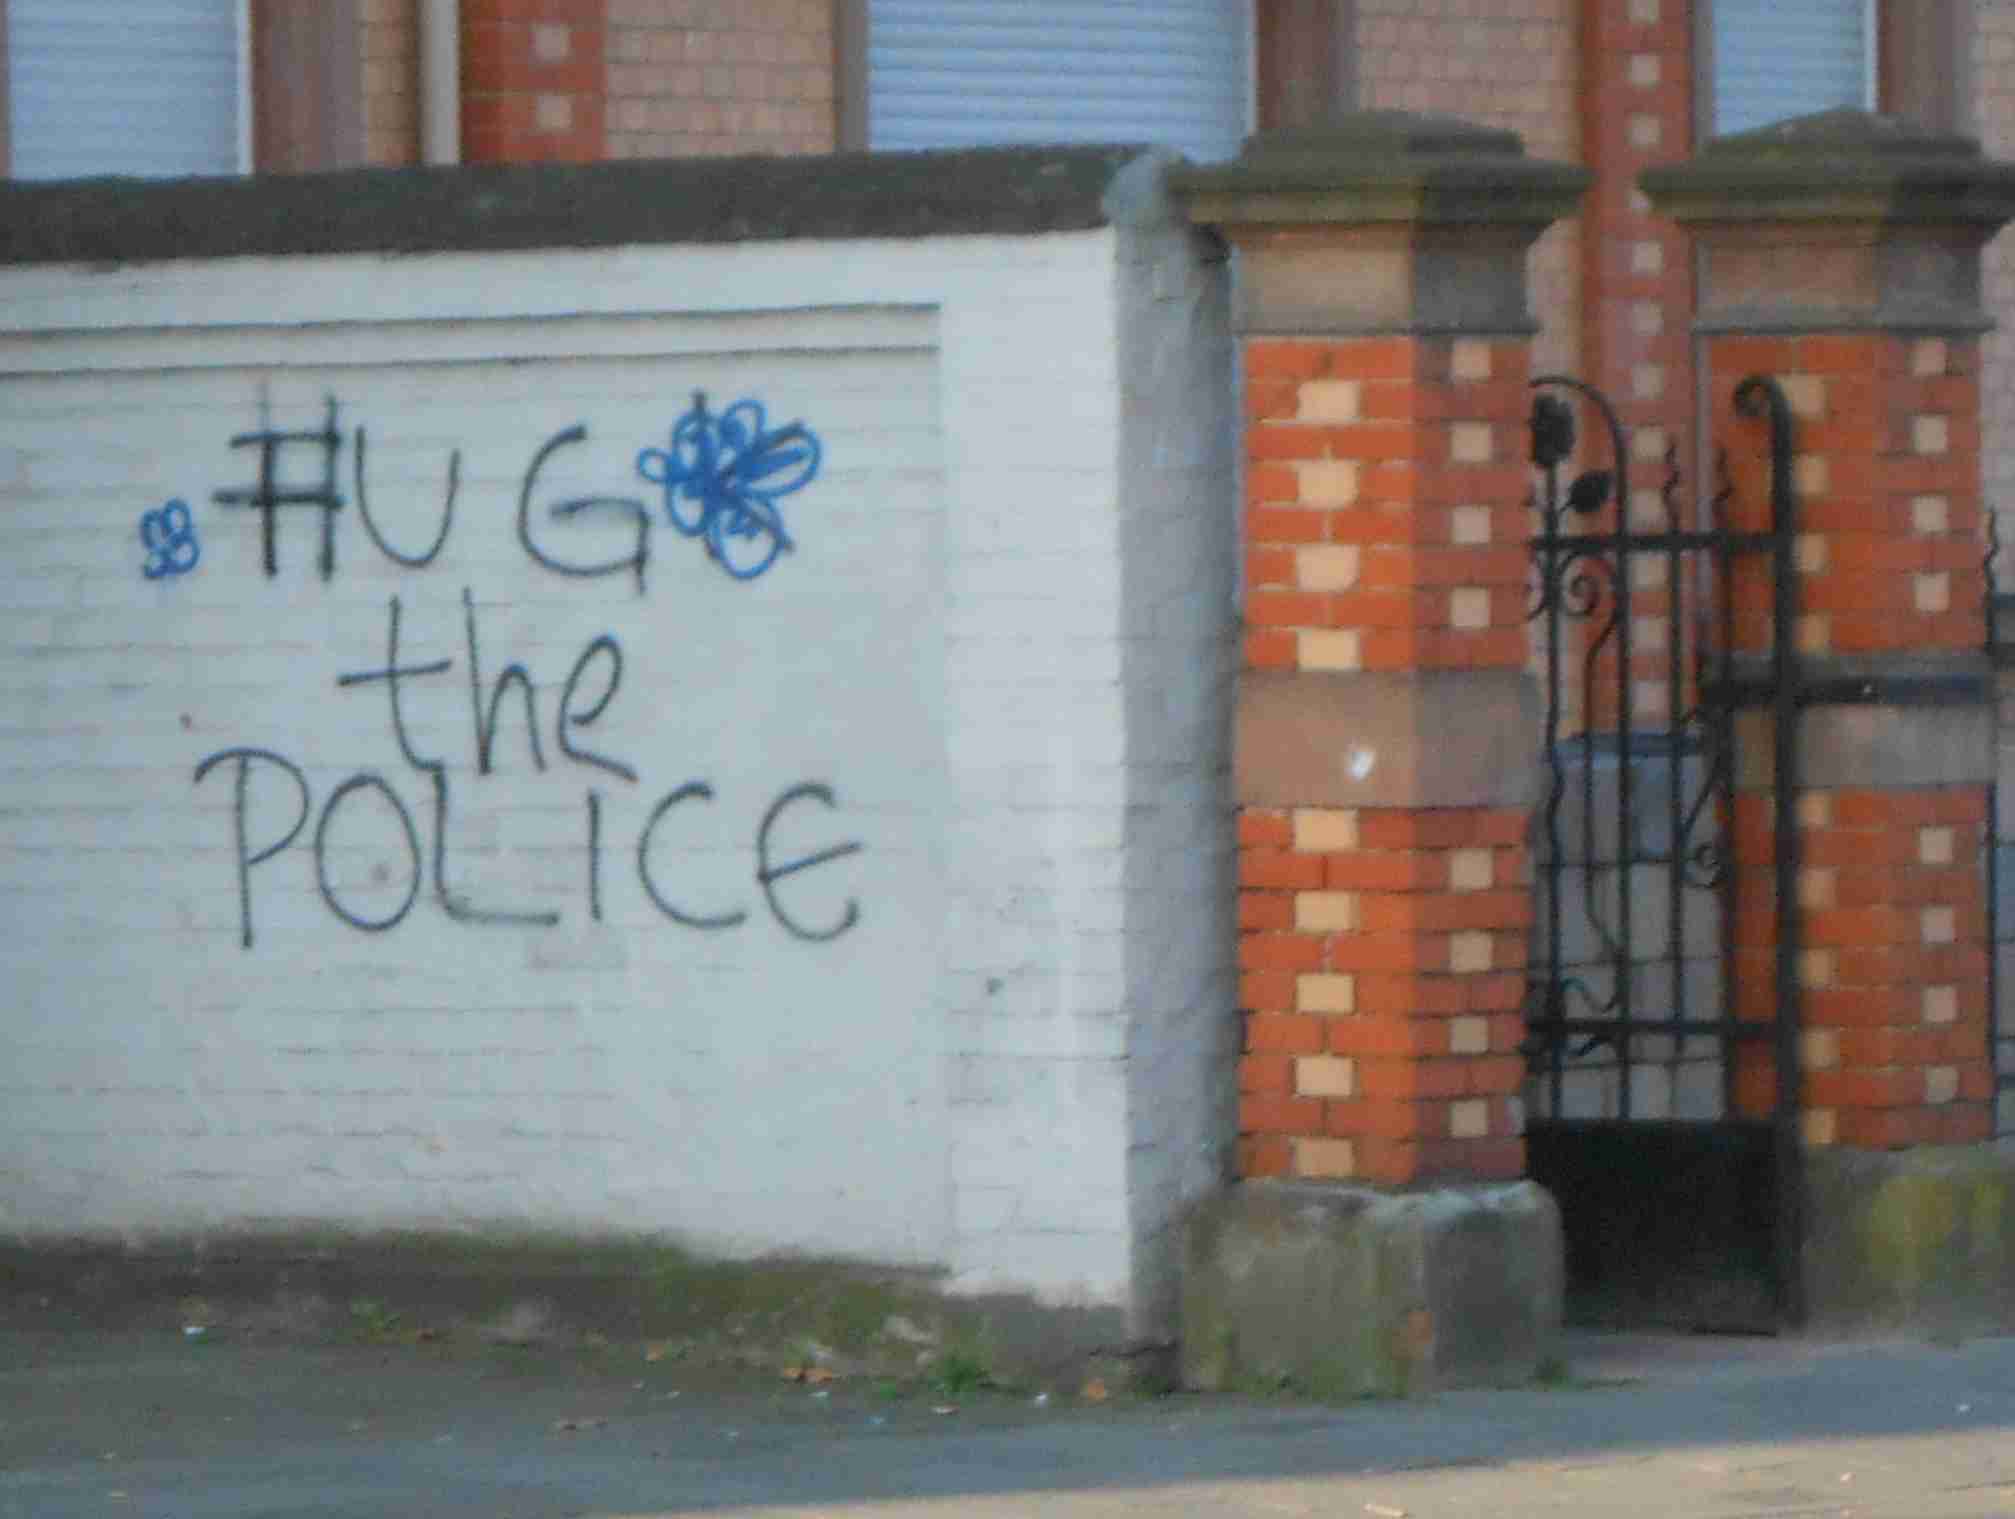 HUG
the
POLICE